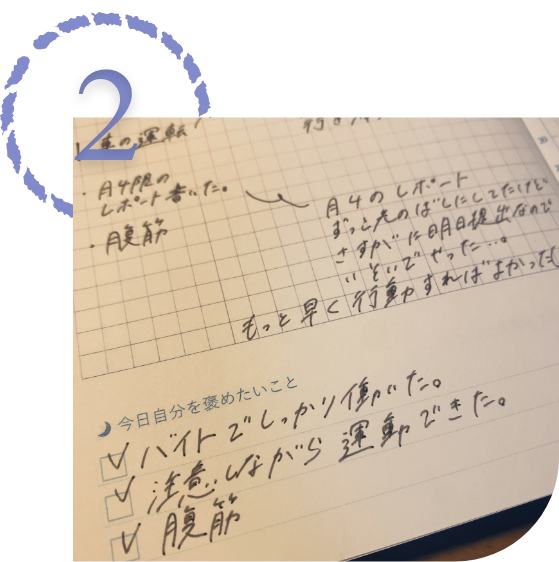 2
車の運転
・月4限の
レポート書いた。
・腹筋
月4のレポート
ずっと先のばしにしてたけど
さすがに明日提出なので
いそいでやった…。
もっと早く行動すればよかった
今日自分を褒めたいこと
バイトでしっかり働いた。
注意しながら運動できた。
腹筋